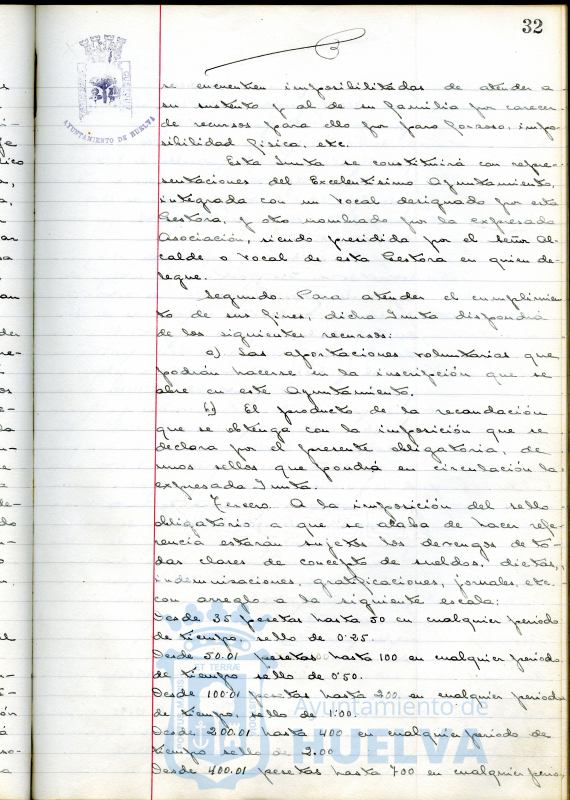 32
AYUNTAMIENTO DE HUELVA
se encuentren imposibilitadas de atender a
su sustento y al de su familia por carecer
de recursos para ello por paro forzoso, impo-
sibilidad física, etc.
Esta Junta se constituirá con repre-
sentaciones del Excelentísimo Ayuntamiento,
integrada con un vocal designado por esta
Gestora, y otro nombrado por la expresada
Asociación, siendo presidida por el Señor Al-
calde o vocal de esta Gestora en quien de-
legue.
Segundo. Para atender el cumplimien-
to de sus fines, dicha Junta dispondrá
de los siguientes recursos:
a) Las aportaciones voluntarias que
podrán hacerse en la inscripción que se
abre en este Ayuntamiento.
b) El producto de la recaudación
que se obtenga con la imposición que se
declara por el presente obligatoria, de
unos sellos que pondrá en circulación la
expresada Junta.
Tercero. A la imposición del sello
obligatorio a que se acaba de hacer refe-
rencia estarán sujetos los devengos de to-
das clases de concepto de sueldos, dietas,
indemnizaciones, gratificaciones, jornales, etc.
con arreglo a la siguiente escala:
Desde 35 pesetas hasta 50 en cualquier periodo
de tiempo, sello de 0'25.
Desde 50.01 pesetas hasta 100 en cualquier periodo
de tiempo sello de 0'50.
Desde 100'01 pesetas hasta 200 en cualquier periodo
de tiempo, sello de 1'00.
Desde 200.01 hasta 400 en cualquier periodo de
tiempo sello de 2.00
Desde 400.01 pesetas hasta 700 en cualquier perio-
Ayuntamiento de
HUELVA